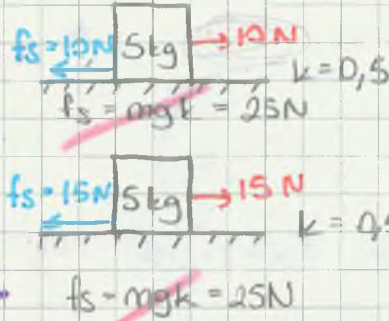 fs = 10N 5kg 10N
k = 0,5
fs = mgk = 25N
fs = 15N 5kg 15N
k = 0,5
fs = mgk = 25N